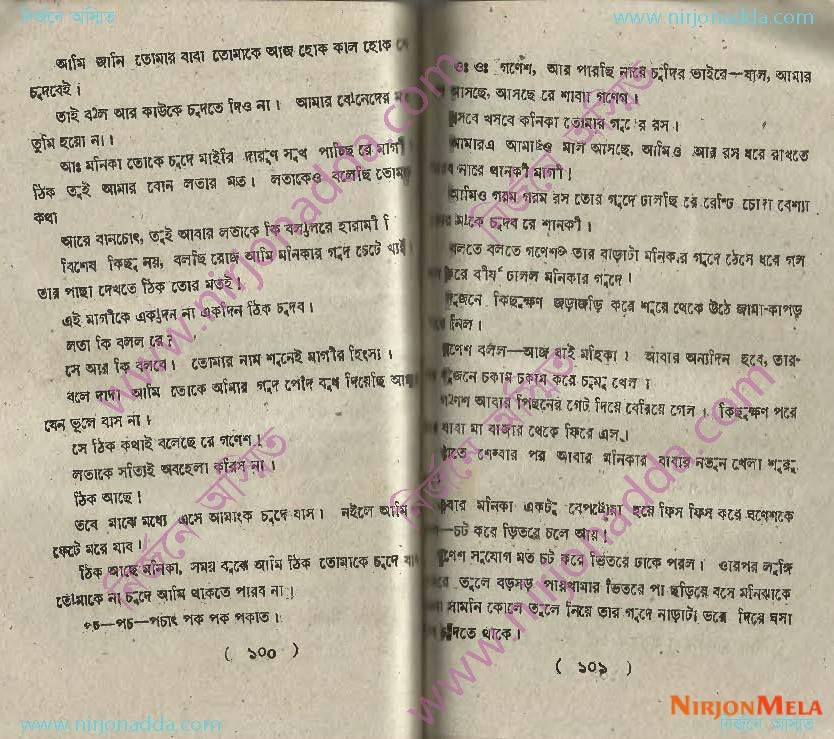 নির্জনে অস্মিত
www.nirjonadda.com
আমি জানি তোমার বাবা তোমাকে আজ হোক কাল হোক
চুদবেই।
তাই বলি আর কাউকে চুদতে দিও না। আমার বোনেদের মত
তুমি হয়ো না।
আঃ মনিকা তোকে চুদে মাইরি দারুণ সুখ পাচ্ছি রে মাগী।
ঠিক তুই আমার বোন লতার মত। লতাকেও বলেছি তোমার
কথা
আরে বানচোৎ, তুই আবার লতাকে কি বললিরে হারামী
বিশেষ কিছু নয়, বলছি রোজ আমি মনিকার গুদ চেটে খাই
তার পাছা দেখতে ঠিক তোর মতই।
এই মাগীকে একদিন না একদিন ঠিক চুদব।
লতা কি বলল রে?
সে আর কি বলবে। তোমার নাম শুনেই মাগীর হিংসা।
বলে দাদা আমি তোকে আমার গুদ পোঁদ দিয়েছি
যেন ভুলে যাস না।
সে ঠিক কথাই বলেছে রে গণেশ।
লতাকে সত্যিই অবহেলা করিস না।
ঠিক আছে।
তবে মাঝে মধ্যে এসে আমাকে চুদে যাস। নইলে আমি
ফেটে মরে যাব।
ঠিক আছে মনিকা, সময় বুঝে আমি ঠিক তোমাকে চুদে যাব
তোমাকে না চুদে আমি থাকতে পারব না।
পচ—পচ—পচাৎ পক পক পকাত।
( ১০০ )
ওঃ ওঃ গণেশ, আর পারছি নারে চুদির ভাইরে—যাস, আমার
আসছে, আসছে রে শালা গণেশ।
খসবে খসবে কনিকা তোমার গুদের রস।
আমারও মাল আসছে, আমিও আর রস ধরে রাখতে
নারে খানকী মাগী।
আমিও গরম গরম রস তোর গুদে ঢালছি রে রেন্ডি চোদা বেশ্যা
মাকে চুদব রে খানকী।
বলতে বলতে গণেশও তার বাড়াটা মনিকার গুদে ঠেসে ধরে গল
করে বীর্য ঢালল মনিকার গুদে।
দুজনে কিছুক্ষণ জড়াজড়ি করে শুয়ে থেকে উঠে জামা-কাপড়
নিল।
গণেশ বলল—আজ যাই মনিকা। আবার অন্যদিন হবে, তার-
দুজনে চকাম চকাম করে চুমু খেল।
গণেশ আবার পিছনের গেট দিয়ে বেরিয়ে গেল। কিছুক্ষণ পরে
বাবা মা বাজার থেকে ফিরে এল।
রাতে শোবার পর আবার মনিকার বাবার নতুন খেলা শুরু
এবার মনিকা একটু বেপরোয়া হয়ে ফিস ফিস করে গণেশকে
—চট করে ভিতরে চলে আয়।
গণেশ সুযোগ মত চট করে ভিতরে ঢুকে পরল। তারপর লুঙ্গি
তুলে বড়সড় পায়খানার ভিতরে পা ছড়িয়ে বসে মনিকাকে
সামনি কোলে তুলে নিয়ে তার গুদে দিয়ে ঘসা
দিতে থাকে।
( ১০১ )
www.nirjonadda.com
NIRJONMELA
নির্জনে অস্মিত
www.nirjonadda.com